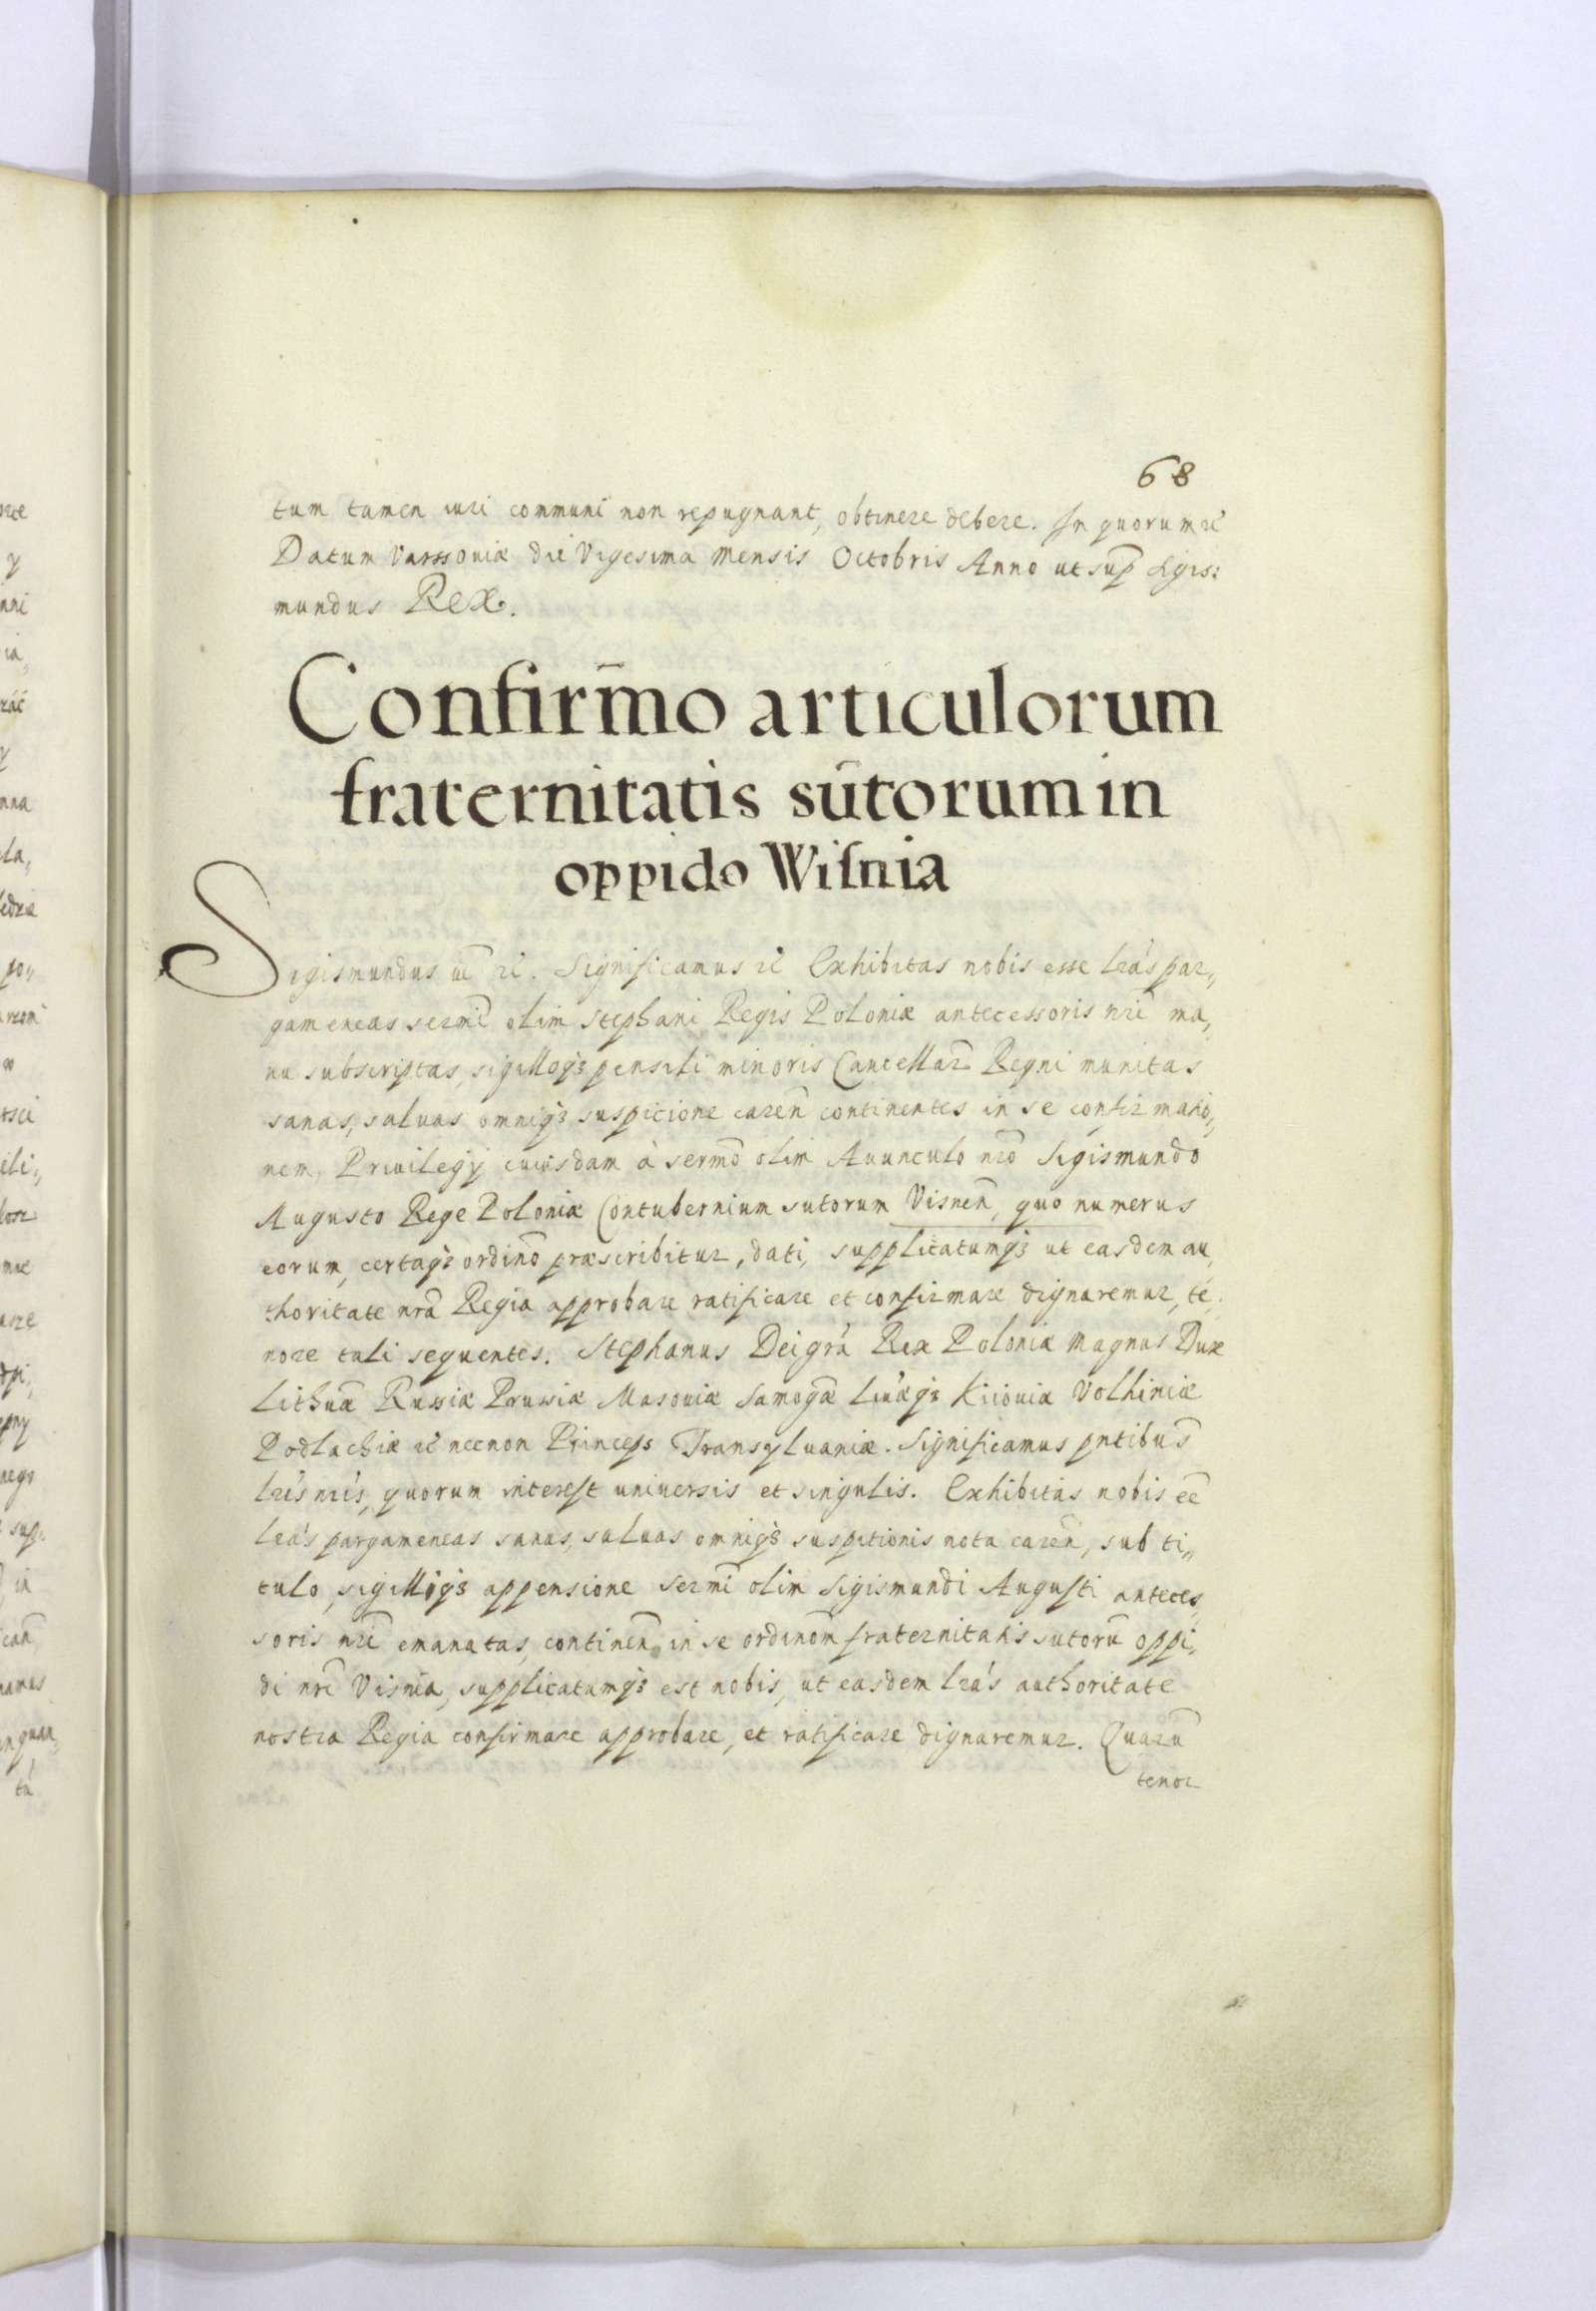 68
tum tamen iuri communi non repugnant, obtinere debere. In quorum rei
Datum Varssouiæ die Vigesima Mensis Octobris Anno ut sup̃ Sigis:
mundus Rex.
Confirm̃o articulorum
fraternitatis sũtorum in
oppido Wiſnia
Sigismundus etc̃ rei. Significamus rei Exhibitas nobis esse lr̃as par„
gameneas serm̃i olim Stephani Regis Poloniæ antecessoris nr̃i ma,
nu subscriptas, sigilloqȝ pensili minoris Cancellar̃ Regni munitas
sanas, saluas omniqȝ suspicione caren̄ continentes in se confirmatio„
nem, Priuilegÿ cuiusdam à serm̃o olim Auunculo nr̃o Sigismundo
Augusto Rege Poloniæ Contubernium sutorum Visnen̄, quo numerus
eorum, certaqȝ ordin̄o præscribitur, dati, supplicatumqȝ ut easdem au,
thoritate nr̃a Regia approbare ratificare et confirmare dignaremur, te,
nore tali sequentes. Stephanus Dei gr̃a Rex Poloniæ Magnus Dux
Lithuæ̃ Russiæ Prussiæ Masouiæ Samogæ̃ Liuæ̃qȝ Kiiouiæ Volhiniæ
Podlachiæ rei necnon Princeps Transyluaniæ. Significamus pñtibus̃
lr̃is nr̃is, quorum interest uniuersis et singulis. Exhibitas nobis eẽ
lr̃as pargameneas sanas, saluas omniqȝ suspitionis nota caren̄, sub ti„
tulo, sigilliqȝ appensione Serm̃i olim Sigismundi Augusti anteces,
soris nr̃i emanatas, continen̄ in se ordinom̃ fraternitatis sutorũ oppi„
di nr̃i Visnia, supplicatumqȝ est nobis, ut easdem lr̃as authoritate
nostra Regia confirmare approbare, et ratificare dignaremur. Quarũ
tenor